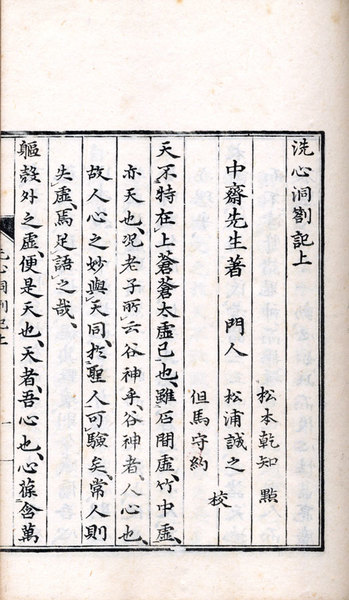 洗心洞劄記上
中齋先生著　門人
松本乾知　點
松浦誠之
但馬守約
校
天不特在上蒼蒼太虛已也雖石間虛竹中虛
亦天也況老子所云谷神乎谷神者人心也
故人心之妙與天同於聖人可驗矣常人則
失虛焉足語之哉
軀殼外之虛便是天也天者吾心也心葆含萬
洗心洞劄記上
一